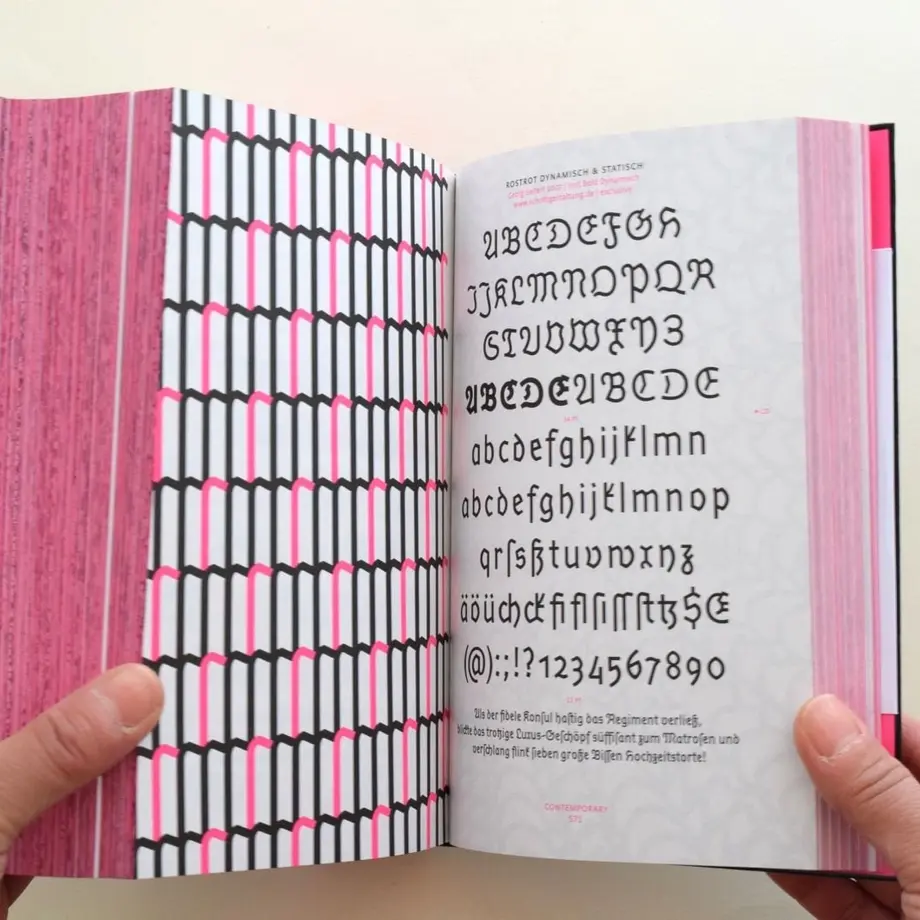 ROSTROT DYNAMISCH & STATISCH
Georg Seifert
www.schriftgestaltung.de | exclusive
ABCDEFGH
IJKLMNOPQR
STUVWXYZ
ABCDEABCDE
abcdefghijklmn
abcdefghijklmnop
qrſsßtuvwxyz
äöüchckfiflſiſſſttz$
(@):;!?1234567890
Als der fidele Konſul haſtig das Regiment verließ,
das trotzige Luxus-Geſchöpf ſüffiſant zum Matroſen und
verſchlang flink ſieben große Biſſen Hochzeitstorte!
CONTEMPORARY
571